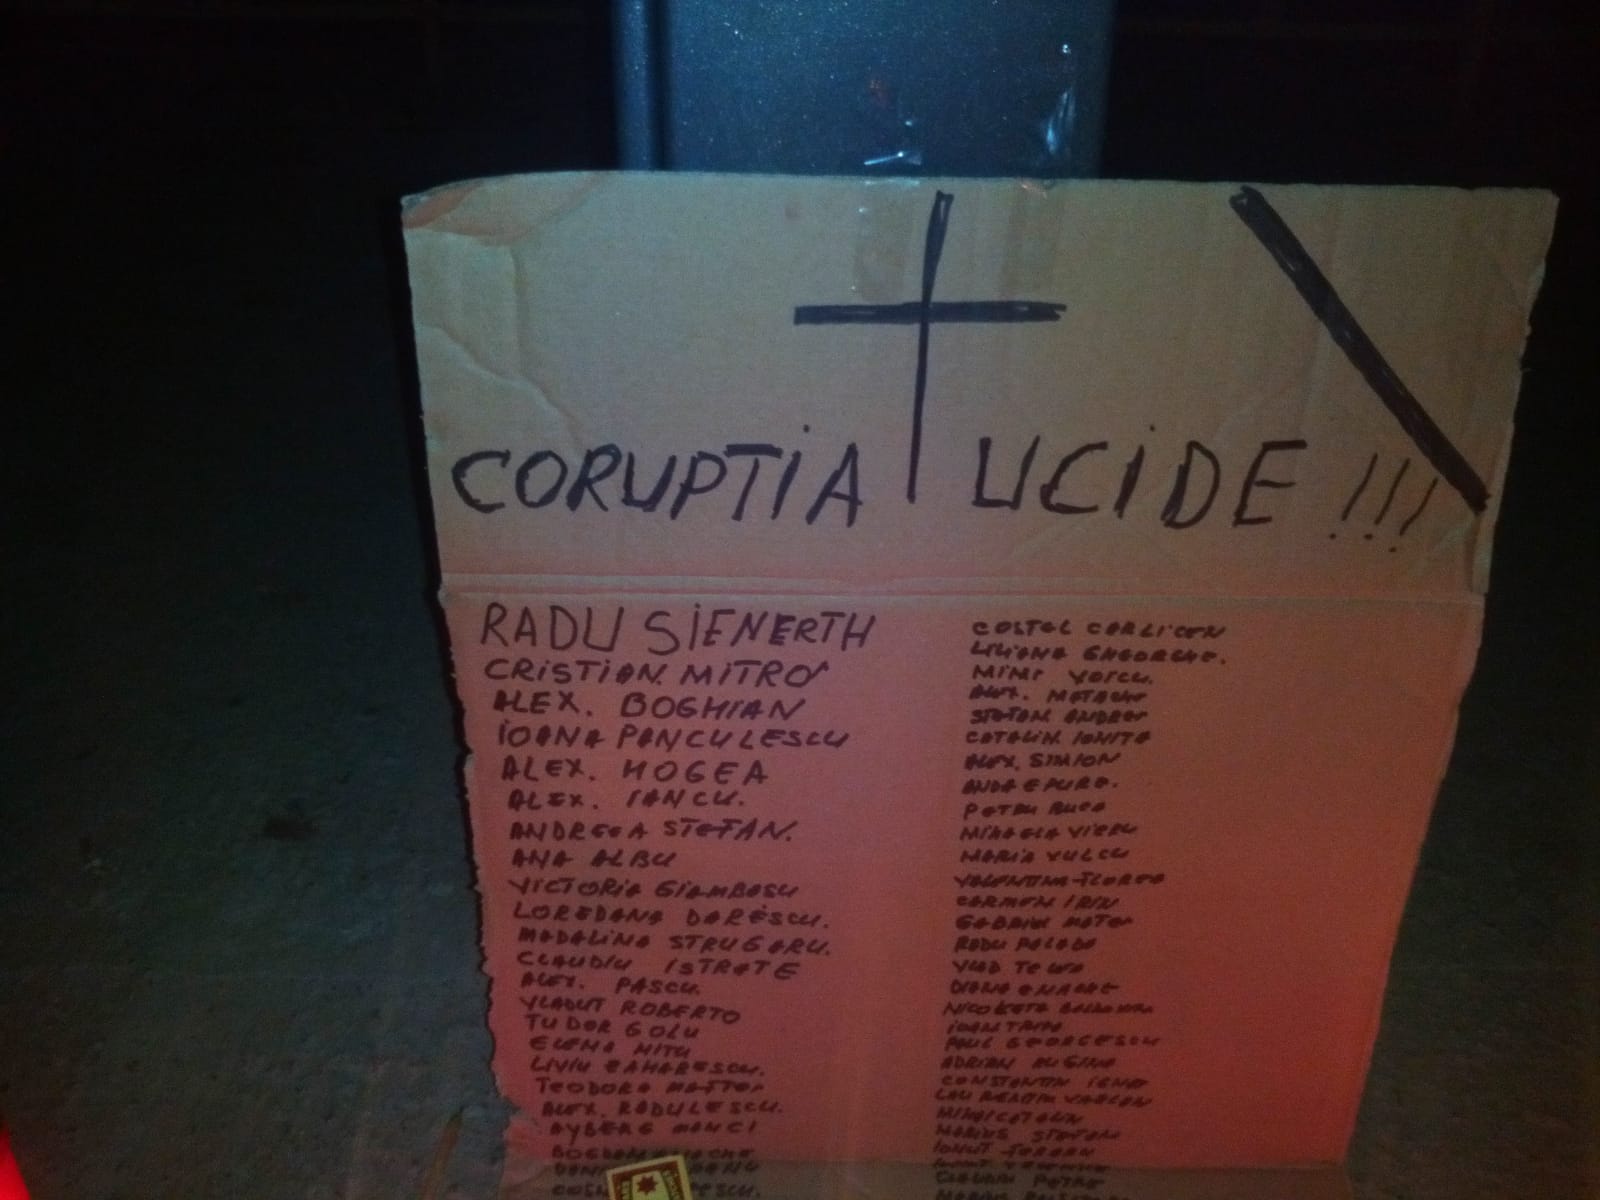 CORUPTIA UCIDE !!!
RADU SIENERTH
CRISTIAN MITRO
ALEX. BOGHIAN
IOANA PANCULESCU
ALEX. HOGEA
ALEX. IANCU.
ANDREEA STEFAN.
ANA ALBU
VICTORIA GIAMBASU
LOREDANA DARESCU.
MADALINA STRUGARU.
CLAUDIU ISTRATE
ALEX. PASCU.
VLADUT ROBERTO
TUDOR GOLU
ELENA MITU
LIVIU ZAHARESCU.
TEODORA
ALEX. RADULESCU.
AYBERG
BOGDAN
COSTEL
LILIANA GHEORGHE.
MIMI VOICU.
ALEX. MATACHE
STEFAN ANDREI
CATALIN IONITA
ALEX. SIMION
ANDA EPURE.
PETRU
MIHAELA VIERU
MARIA VULCU
VALENTINA FLOREA
CARMEN IRIN
GABRIEL MATEI
RADU PALADE
VLAD TELEA
DIANA ENACHE
NICOLETA
IOAN
PAUL GEORGESCU
ADRIAN RUGINA
CONSTANTIN IGNAT
LAURENTIU VARLAN
MIHAI CATALIN
MARIUS STEFAN
IONUT
CLAUDIU PETRE